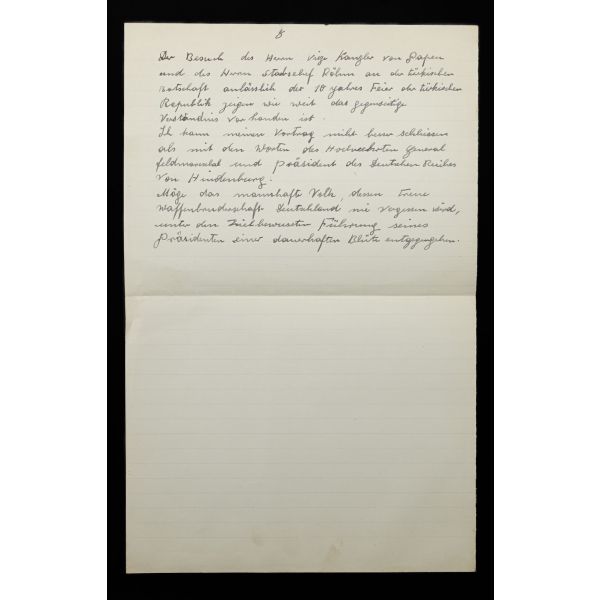 8
Der Besuch des Herrn Vize Kanzler von Papen
und des Herrn Stabschef Röhm an der türkischen
Botschaft anlässlich der 10 jahres Feier der türkischen
Republik zeigen wie weit das gegenseitige
Verständnis vorhanden ist.
Ich kann meinen Vortrag nicht besser schliessen
als mit den Worten des Hochverehrten General
feldmarschal und Präsident des Deutschen Reiches
von Hindenburg:
Möge das mannhafte Volk, dessen treue
Waffenbruderschaft Deutschland nie vergessen wird,
unter den Zielbewussten Führung seines
Präsidenten einer dauerhaften Blüte entgegengehen.